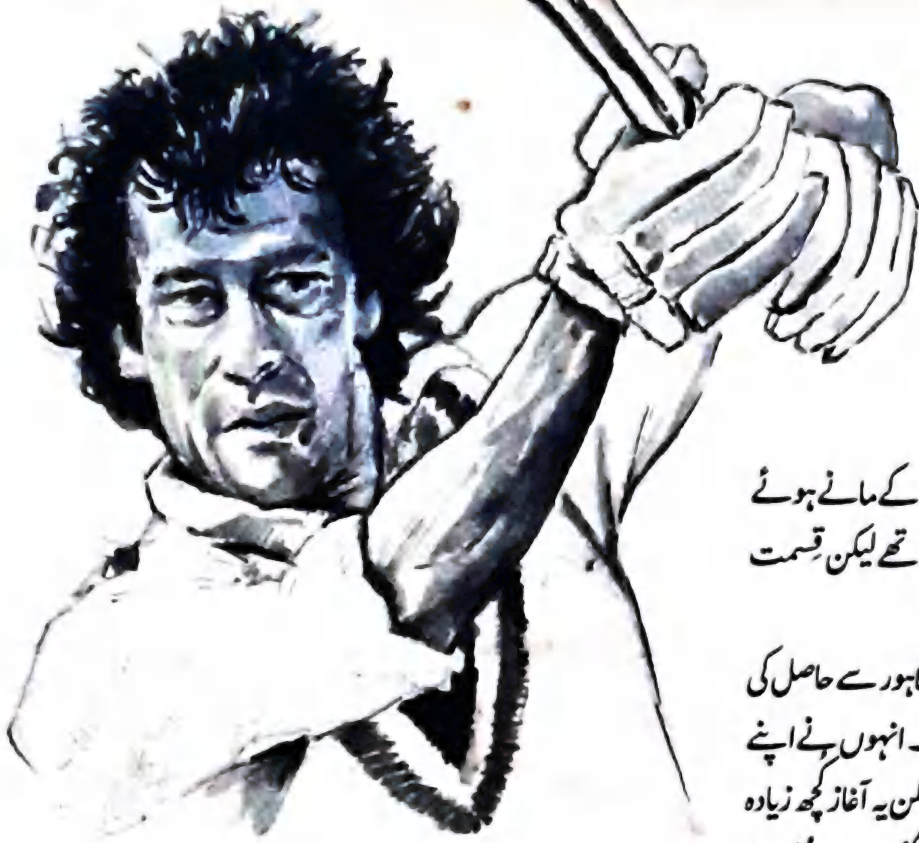 کے مانے ہوئے
تھے لیکن قسمت
لاہور سے حاصل کی
انہوں نے اپنے
یہ آغاز کچھ زیادہ